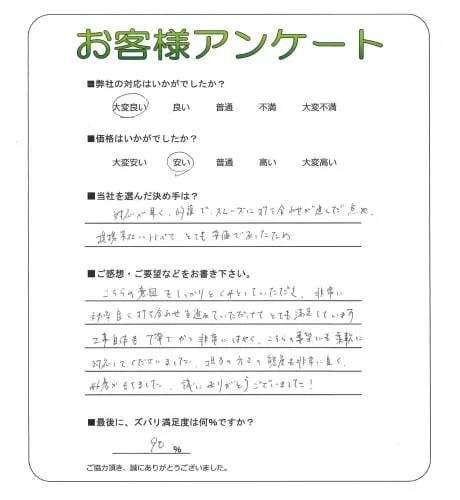 お客様アンケート
■弊社の対応はいかがでしたか？
大変良い 良い 普通 不満 大変不満
■価格はいかがでしたか？
大変安い 安い 普通 高い 大変高い
■当社を選んだ決め手は？
対応が早く、的確で、スムーズに打ち合わせが進んだ点や、
提携業者に比べて とても安価であったため
■ご感想・ご要望などをお書き下さい。
こちらの意図をしっかりとくみとっていただき、非常に
効率良く打ち合わせを進めていただけて とても満足しています
工事自体も 丁寧でかつ非常にはやく、こちらの要望にも柔軟に
対応してくださいました。担当の方々の態度も非常に良く、
好感がもてました。誠にありがとうございました！
■最後に、ズバリ満足度は何%ですか？
90 %
ご協力頂き、誠にありがとうございました。